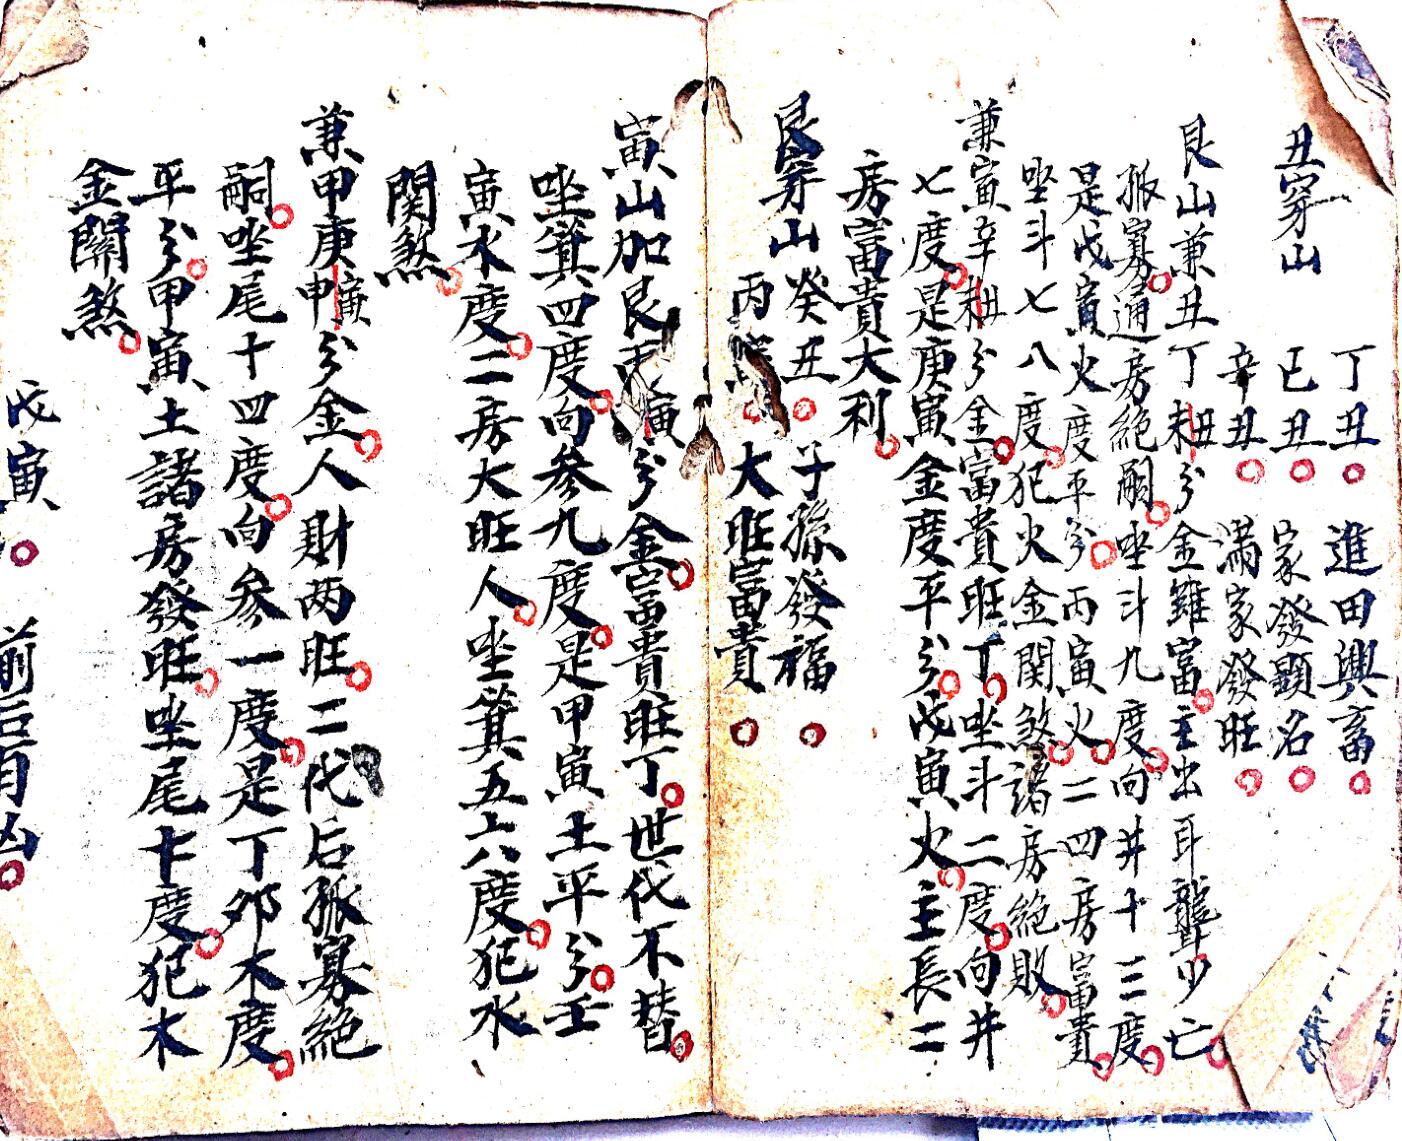 丁丑 進田興畜
丑穿山 己丑 家發顯名
辛丑 滿家發旺
艮山兼丑丁 丑 分金雖富主出耳聾少亡
孤寡通房絕嗣坐斗九度向井十三度
是戊寅火度平分丙寅火二四房富貴
坐斗七八度犯火金関煞諸房絕敗
兼寅辛 丑分金富貴旺丁坐斗二度向井
七度是庚寅金度平分戊寅火主長二
房富貴大利
艮穿山 癸丑 子孫發福
丙 大旺富貴
寅山加艮 寅分金富貴旺丁世代不替
坐箕四度向參九度是甲寅土平分壬
寅木度二房大旺人坐箕五六度犯水
関煞
兼甲庚 寅分金人財两旺二代后孤寡絕
嗣坐尾十四度向參一度是丁卯木度
平分甲寅土諸房發旺坐尾十度犯木
金關煞
戊寅 凶